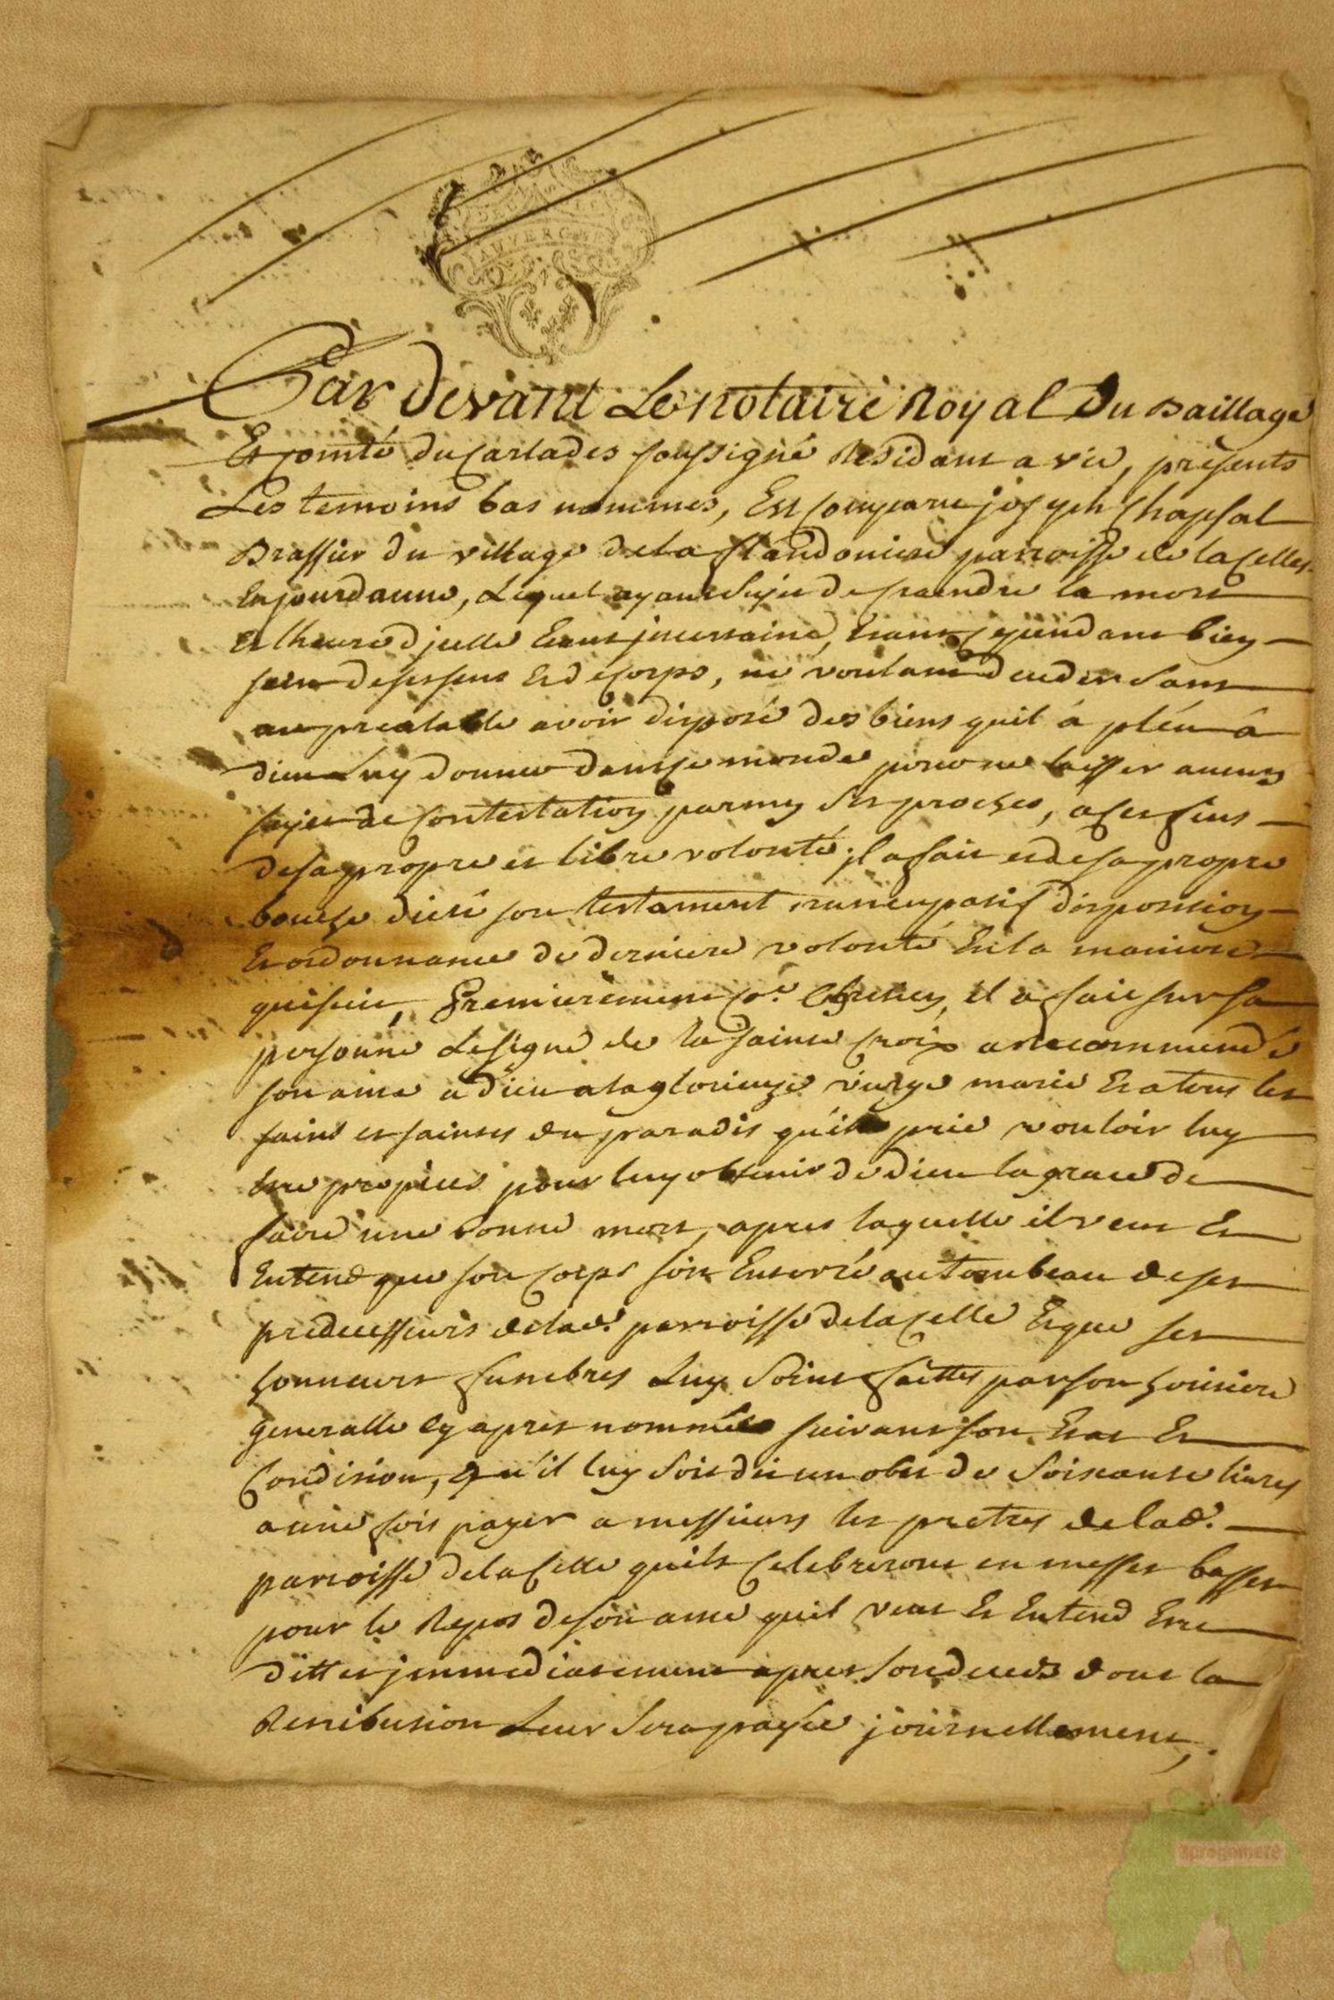 AUVERGNE
Par devant Le notaire Royal Du Baillage
Et Comté du Carlades soussigné Residant a vic, presents
Les temoins bas nommes, Est Comparu joseph Chapsal
Brassier du village de la flandoniere parroisse de la Celles
En jourdanne, Lequel ayant sujet de craindre la mort
Et lheure dicelle Etant jncertaine, Etant Cependant bien
sain de ses sens Et de corps, ne voulant deceder sans
au prealable avoir disposé des biens quil á pleu á
dieu Luy donner dans ce monde pour ne laisser aucun
sujet de Contestation parmy ses proches, a ces fins
de sa propre et libre volonté, jl a fait et de sa propre
bouche dicté son testament nuncupatif disposition
Et ordonnance de derniere volonté En la maniere
qui suit, Premierement Chretien, il a fait sur sa
personne Le signe de la sainte Croix a recommendé
son ame a dieu a la glorieuse vierge marie Et a tous les
saint et saintes du paradis qu'il prie vouloir luy
etre propices pour luy obtenir de dieu la grace de
faire une bonne mort, apres laquelle il veut Et
Entend que son Corps soit Enterré au tombeau de ses
predecesseurs de lad. parroisse de la Celle Et que ses
honneurs funebres Luy soint faittes par son heritiere
generalle Cy apres nommée suivant son Etat Et
Condition, qu'il luy soit dit un obit de soixante livres
a une fois payer a messieurs les pretres de lad.
parroisse de la Celle quils Celebreront en messes basses
pour le Repos de son ame quil veut Et Entend Etre
dittes jmmediatement apres son deceds dont la
Retribution Leur sera payée journellement,
aprogemere